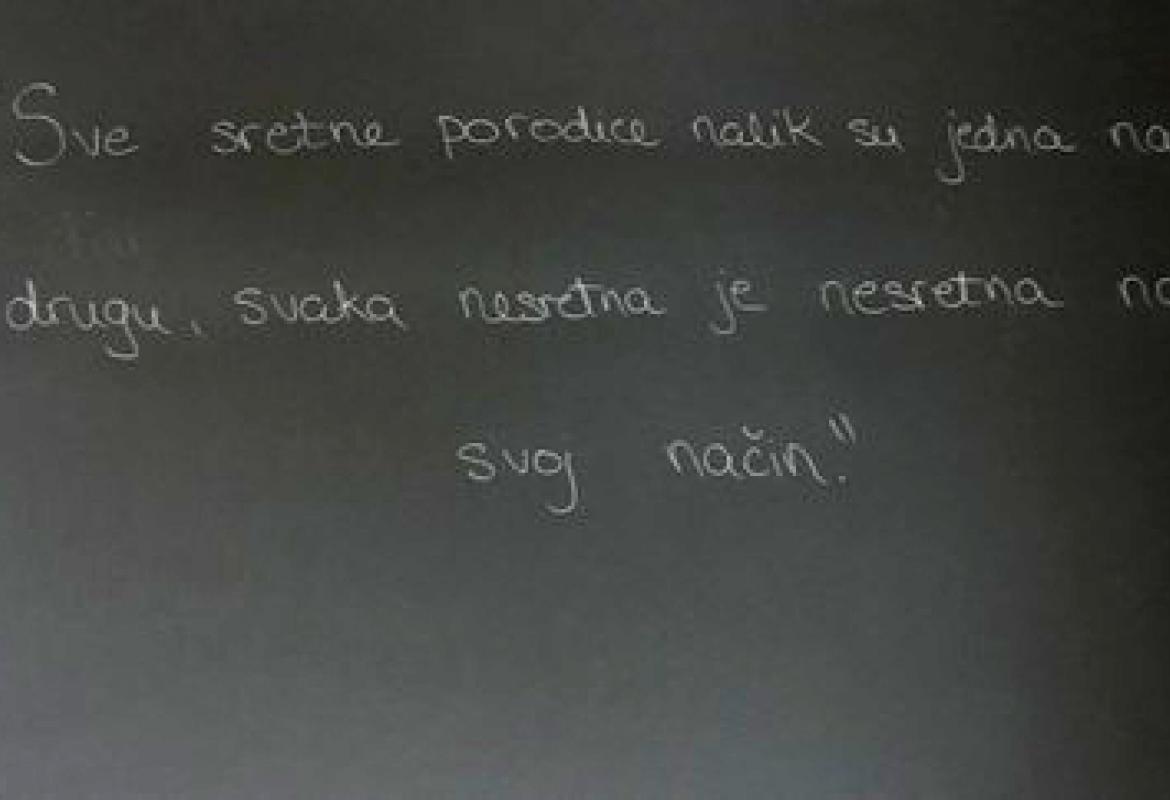 Sve sretne porodice nalik su jedna na
drugu, svaka nesretna je nesretna na
svoj način."